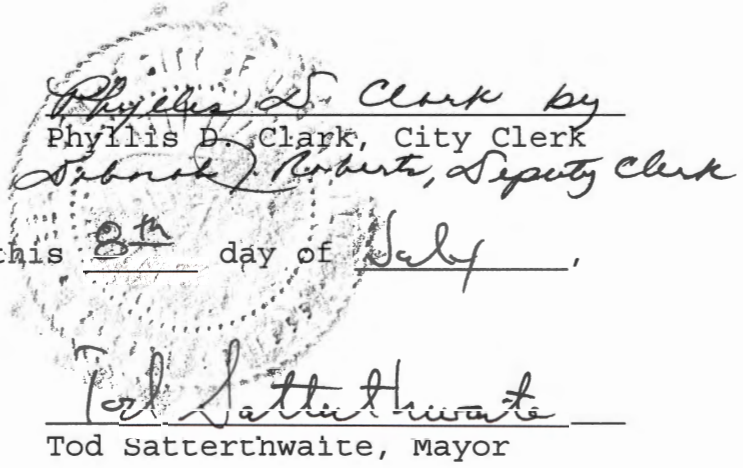 Phyllis D. Clark by
Phyllis D. Clark, City Clerk
Deborah J. Roberts, Deputy Clerk
this 8th day of July,
Tod Satterthwaite
Tod Satterthwaite, Mayor